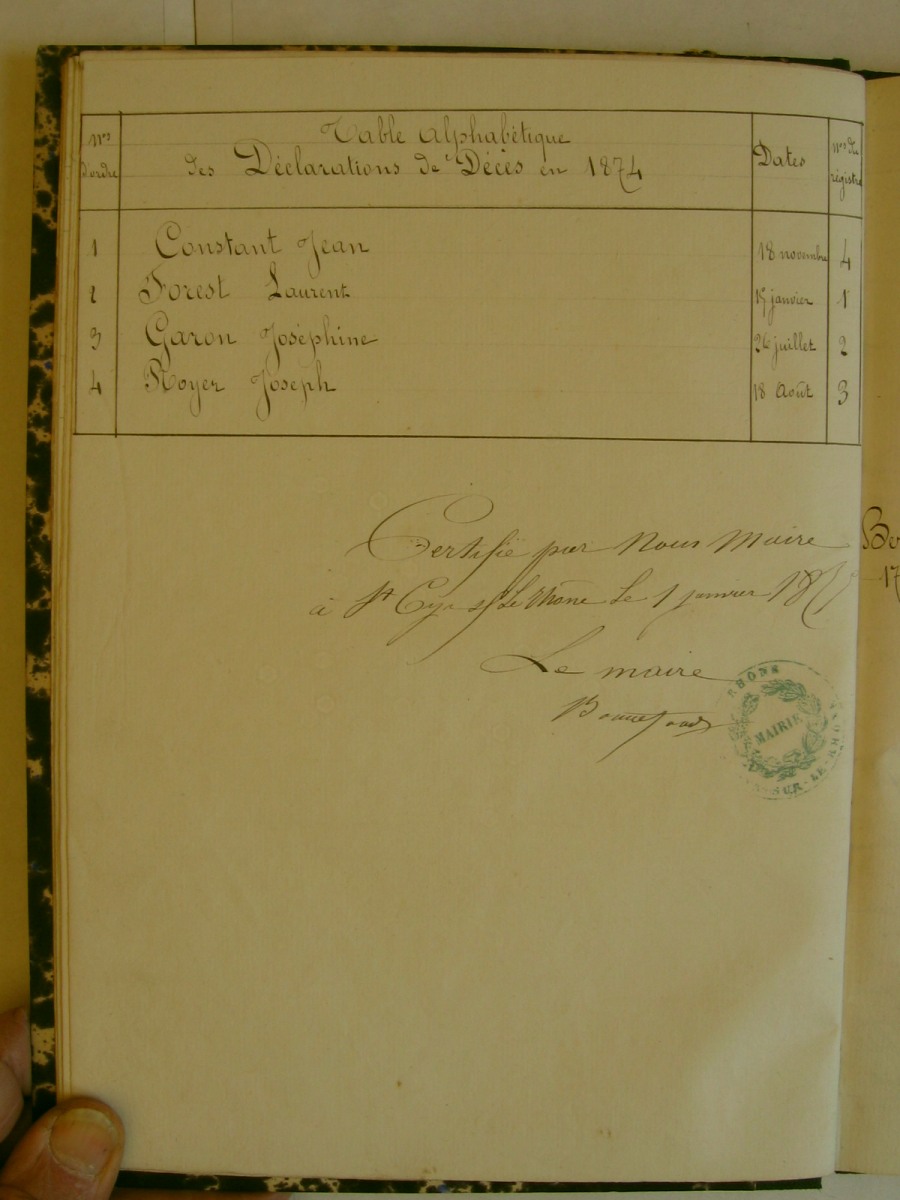 Nos d'ordre
Table Alphabétique
des Déclarations de Décès en 1874
Dates
Nos du régistre
1 Constant Jean 18 novembre 4
2 Forest Laurent 15 janvier 1
3 Garon Joséphine 26 juillet 2
4 Royer Joseph 18 Août 3
Certifié par Nous Maire
à St Cyr s/ Le Rhône Le 1 janvier
Le maire
RHÔNE
MAIRIE
SUR-LE-RHÔ